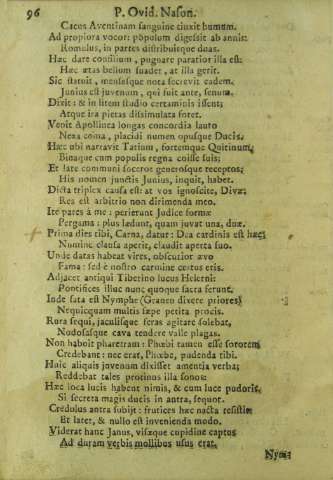 96 P. Ovid. Nason.
Cæcus Aventinam sanguine tinxit humum.
Ad propiora vocor: populum digessit ab annis
Romulus, in partes distribuitque duas.
Hæc dare consilium, pugnare paratior illa est:
Hæc ætas bellum suadet, at illa gerit.
Sic statuit, mensesque nota secrevit eadem.
Junius est juvenum, qui fuit ante, senum.
Dixit: & in litem studio certaminis issent;
Atque ira pietas dissimulata foret.
Venit Apollinea longas concordia lauro
Nexa coma, placidi numen opusque Ducis.
Hæc ubi narravit Tatium, fortemque Quirinum,
Binaque cum populis regna coisse suis;
Et lare communi soceros generosque receptos;
His nomen junctis Junius, inquit, habet.
Dicta triplex causa est: at vos ignoscite, Divæ:
Res est arbitrio non dirimenda meo.
Ite pares à me: perierunt Judice formæ
Pergama: plus lædunt, quam juvat una, duæ.
Prima dies tibi, Carna, datur: Dea cardinis est hæc:
Numine clausa aperit, claudit aperta suo.
Unde datas habeat vires, obscurior ævo
Fama: sed è nostro carmine certus eris.
Adjacet antiqui Tiberino lucus Helerni:
Pontifices illuc nunc quoque sacra ferunt.
Inde sata est Nymphe (Granen dixere priores)
Nequicquam multis sæpe petita procis.
Rura sequi, jaculisque feras agitare solebat,
Nodosasque cava tendere valle plagas.
Non habuit pharetram: Phœbi tamen esse sororem
Credebant: nec erat, Phœbe, pudenda tibi.
Huic aliquis juvenum dixisset amantia verba;
Reddebat tales protinus illa sonos:
Hæc loca lucis habent nimis, & cum luce pudoris,
Si secreta magis ducis in antra, sequor.
Credulus antra subijt: frutices hæc nacta resistit:
Et latet, & nullo est invenienda modo.
Viderat hanc Janus, visæque cupidine captus
Ad duram verbis mollibus usus erat.